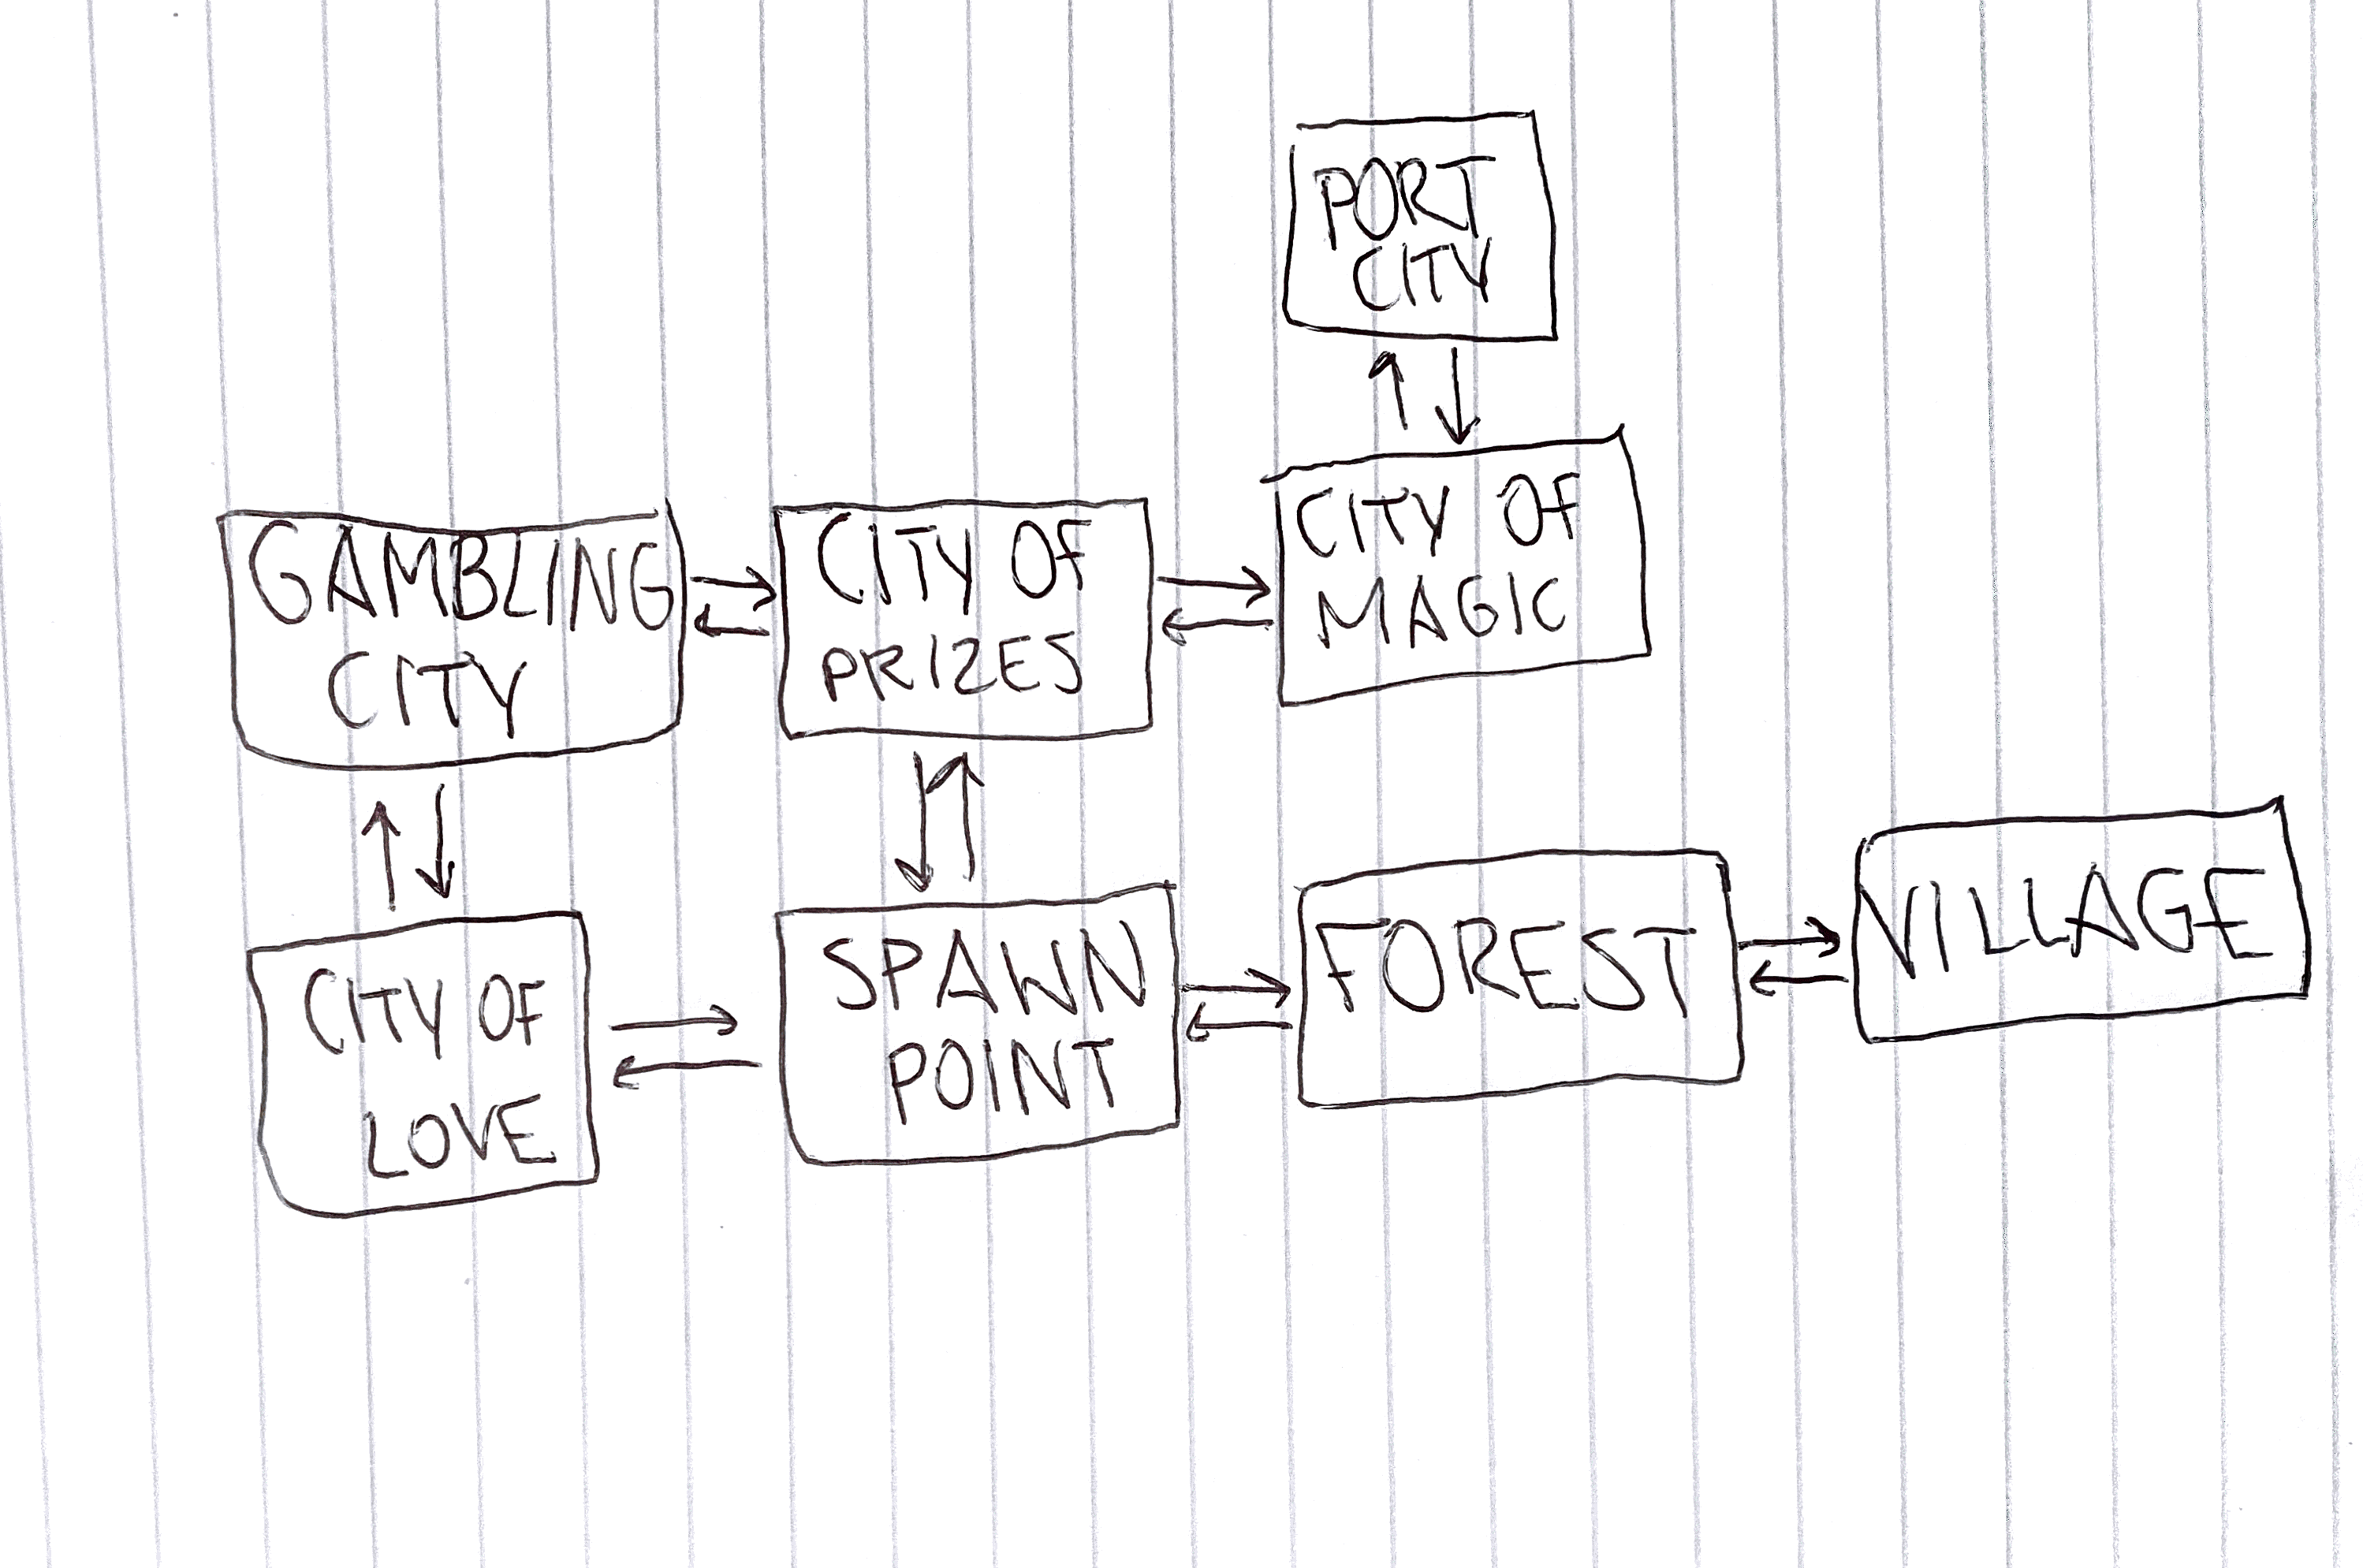 PORT
CITY
GAMBLING
CITY
CITY OF
PRIZES
CITY OF
MAGIC
CITY OF
LOVE
SPAWN
POINT
FOREST
VILLAGE